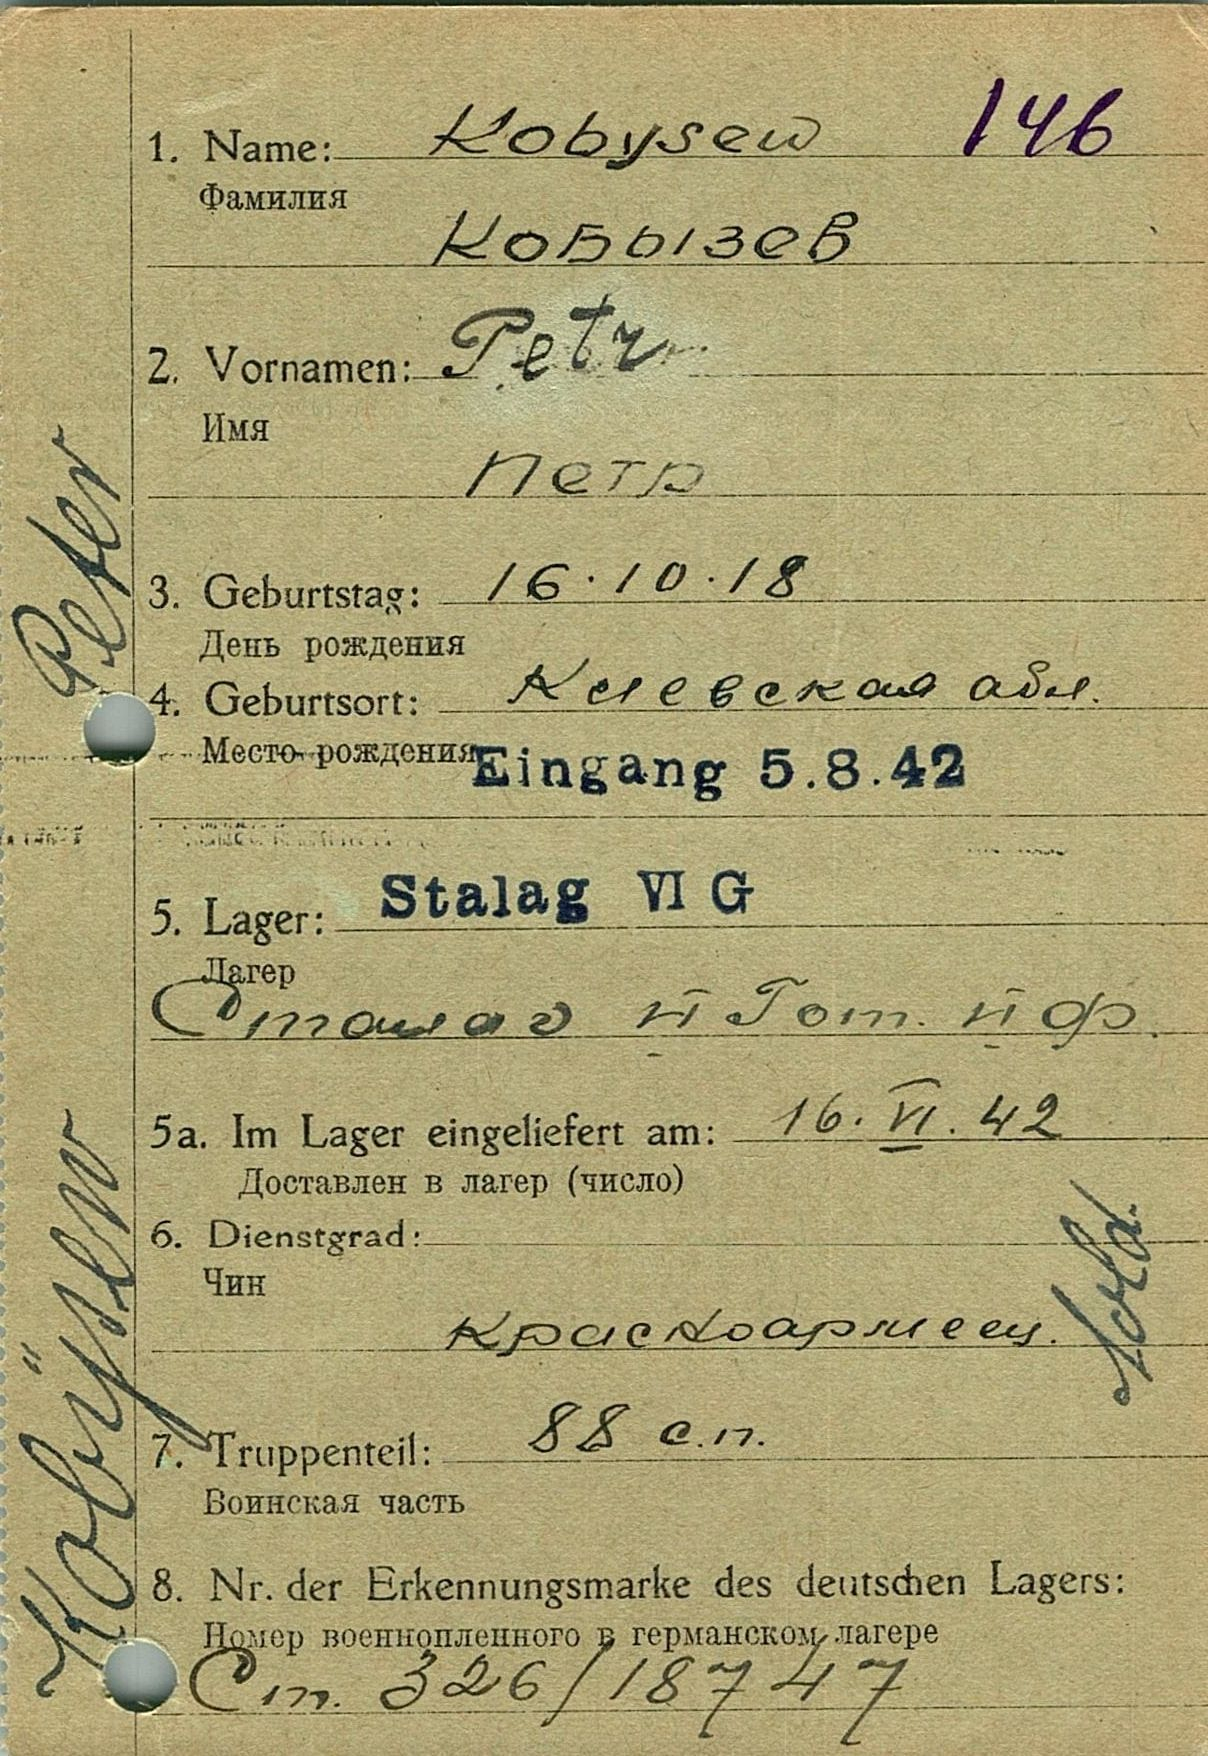 146
1. Name: Kobysew
Фамилия
Кобызев
2. Vornamen: Petr
Имя
Петр
Peter
3. Geburtstag: 16.10.18
День рождения
4. Geburtsort: Киевская обл.
Место рождения Eingang 5.8.42
5. Lager: Stalag VI G
Лагер
Сталаг
5a. Im Lager eingeliefert am: 16. VI. 42
Доставлен в лагер (число)
6. Dienstgrad:
Чин
Красноармеец.
Sold.
Kobÿsew
7. Truppenteil: 88 с.п.
Воинская часть
8. Nr. der Erkennungsmarke des deutschen Lagers:
Номер военнопленного в германском лагере
Ст. 326/18747